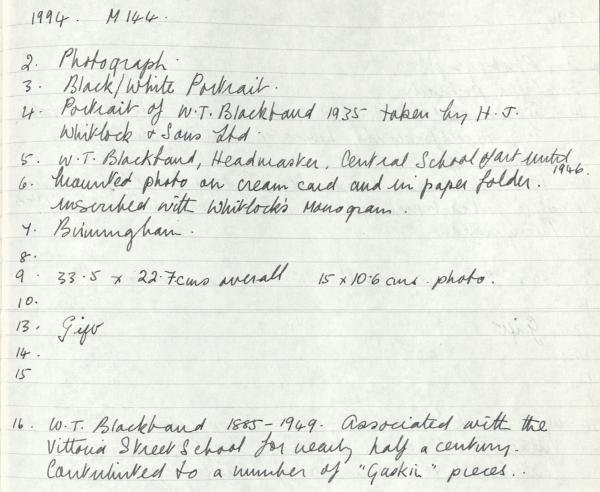 1994. M144.
2. Photograph.
3. Black/White Portrait.
4. Portrait of W.T. Blackband 1935 taken by H.J.
Whitlock & Sons Ltd.
5. W.T. Blackband, Headmaster, Central School of art until
1946.
6. Mounted photo on cream card and in paper folder.
inscribed with Whitlock's Monogram.
7. Birmingham.
8.
9. 33.5 x 22.7cms overall 15 x 10.6 cms. photo.
10.
13. Gift
14.
15
16. W.T. Blackband 1885-1949. Associated with the
Vittoria Street School for nearly half a century.
Contributed to a number of "Gaskin" pieces..